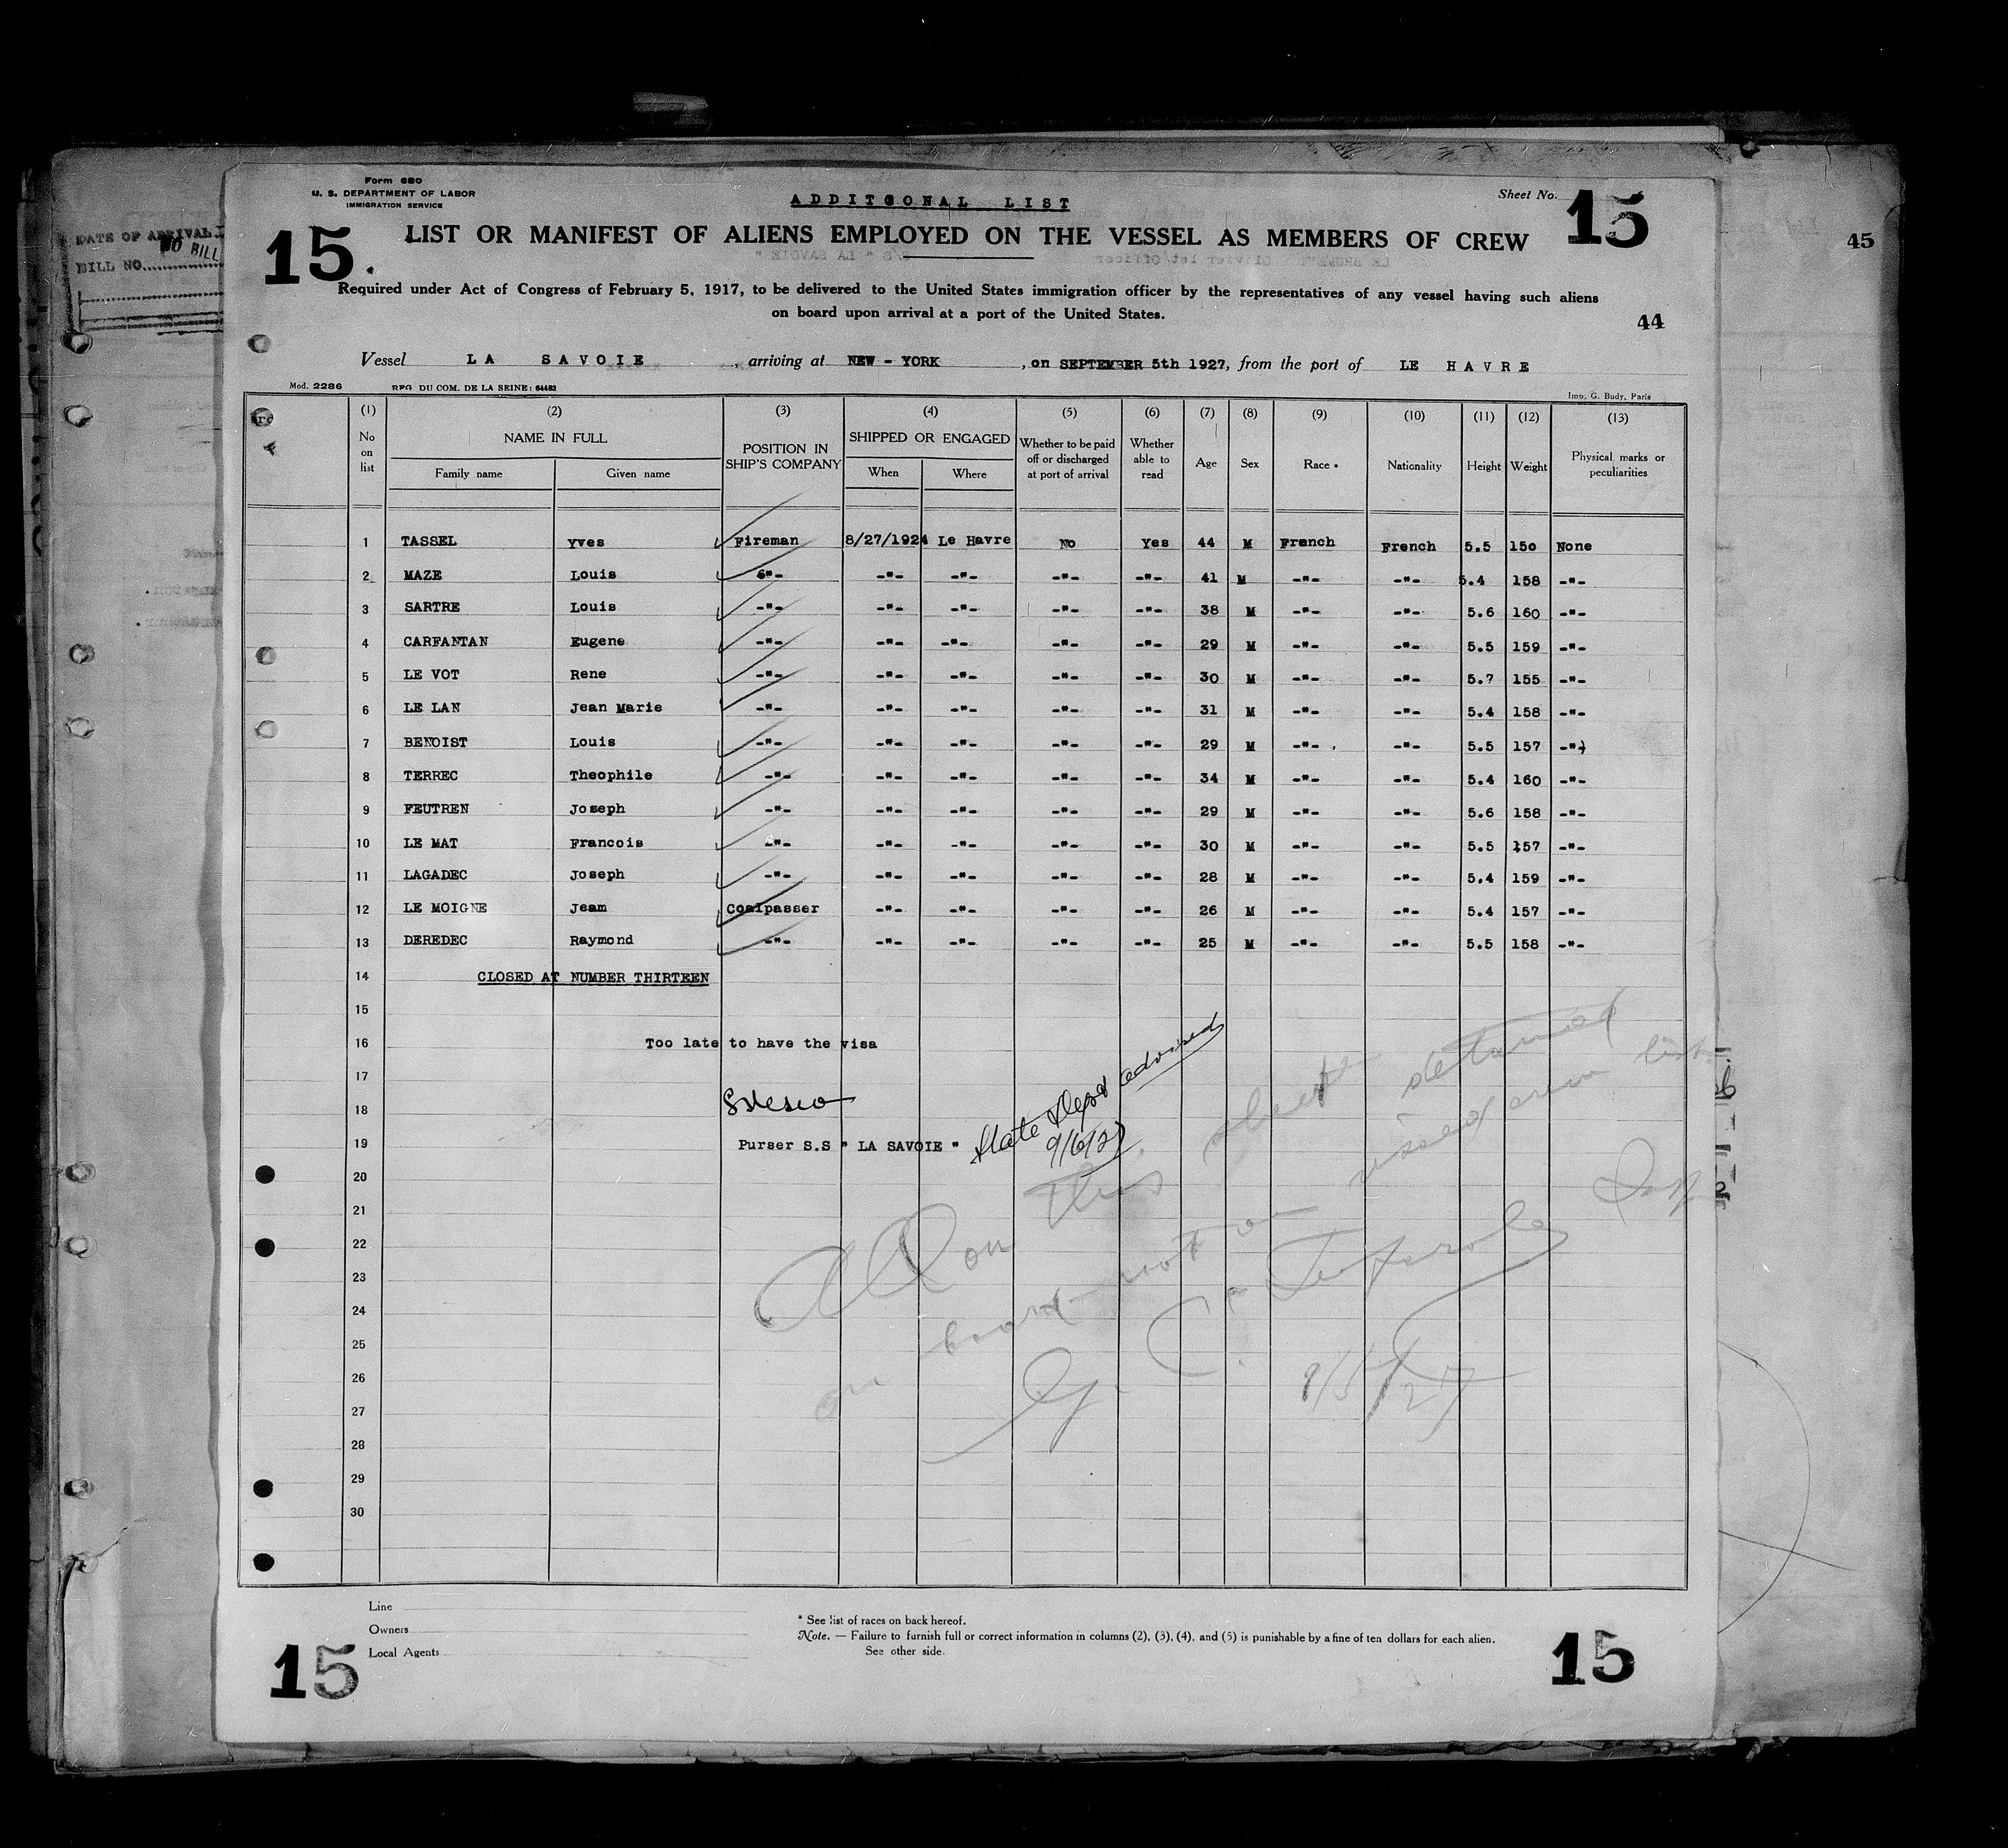 DATE OF ARRIVAL
NO BILL
BILL NO.
Form 680
U. S. DEPARTMENT OF LABOR
IMMIGRATION SERVICE
ADDITGONAL LIST
Sheet No. 15
15
LIST OR MANIFEST OF ALIENS EMPLOYED ON THE VESSEL AS MEMBERS OF CREW
45
Required under Act of Congress of February 5, 1917, to be delivered to the United States immigration officer by the representatives of any vessel having such aliens
on board upon arrival at a port of the United States.
44
Vessel LA SAVOIE, arriving at NEW-YORK, on SEPTEMBER 5th 1927, from the port of LE HAVRE
Mod. 2286 REG. DU COM. DE LA SEINE: 64483 Imp. G. Budy, Paris
(1) (2) (3) (4) (5) (6) (7) (8) (9) (10) (11) (12) (13)
No on list NAME IN FULL Family name Given name POSITION IN SHIP'S COMPANY SHIPPED OR ENGAGED When Where Whether to be paid off or discharged at port of arrival Whether able to read Age Sex Race * Nationality Height Weight Physical marks or peculiarities
1 TASSEL Yves Fireman 8/27/1924 Le Havre No Yes 44 M French French 5.5 150 None
2 MAZE Louis 6"- -"- -"- -"- -"- 41 M -"- -"- 5.4 158 -"-
3 SARTRE Louis -"- -"- -"- -"- -"- 38 M -"- -"- 5.6 160 -"-
4 CARFANTAN Eugene -"- -"- -"- -"- -"- 29 M -"- -"- 5.5 159 -"-
5 LE VOT Rene -"- -"- -"- -"- -"- 30 M -"- -"- 5.7 155 -"-
6 LE LAN Jean Marie -"- -"- -"- -"- -"- 31 M -"- -"- 5.4 158 -"-
7 BENOIST Louis -"- -"- -"- -"- -"- 29 M -"- -"- 5.5 157 -"-
8 TERREC Theophile -"- -"- -"- -"- -"- 34 M -"- -"- 5.4 160 -"-
9 FEUTREN Joseph -"- -"- -"- -"- -"- 29 M -"- -"- 5.6 158 -"-
10 LE MAT Francois -"- -"- -"- -"- -"- 30 M -"- -"- 5.5 157 -"-
11 LAGADEC Joseph -"- -"- -"- -"- -"- 28 M -"- -"- 5.4 159 -"-
12 LE MOIGNE Jeam Coalpasser -"- -"- -"- -"- 26 M -"- -"- 5.4 157 -"-
13 DEREDEC Raymond -"- -"- -"- -"- -"- 25 M -"- -"- 5.5 158 -"-
14 CLOSED AT NUMBER THIRTEEN
15
16 Too late to have the visa
17
18
19 Purser S.S " LA SAVOIE "
State Dept advised
9/6/27
20
21
22
23
24
25
26
27
28
29
30
All on this sheet detained
on board not on visaed crew list
9/5/27
Line
Owners
Local Agents
* See list of races on back hereof.
Note. — Failure to furnish full or correct information in columns (2), (3), (4), and (5) is punishable by a fine of ten dollars for each alien.
See other side.
15
15